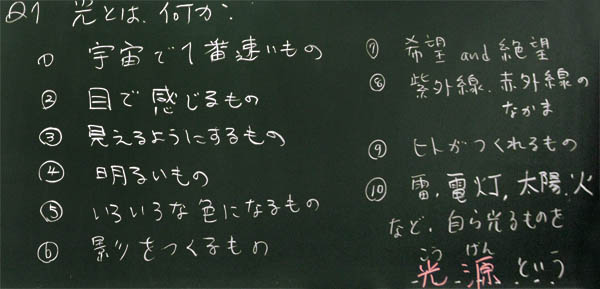 Q1 光とは、何か?
① 宇宙で1番速いもの
② 目で感じるもの
③ 見えるようにするもの
④ 明るいもの
⑤ いろいろな色になるもの
⑥ 影をつくるもの
⑦ 希望 and 絶望
⑧ 紫外線、赤外線の
なかま
⑨ ヒトがつくれるもの
⑩ 雷、電灯、太陽、火
など、自ら光るものを
こう げん
光源という